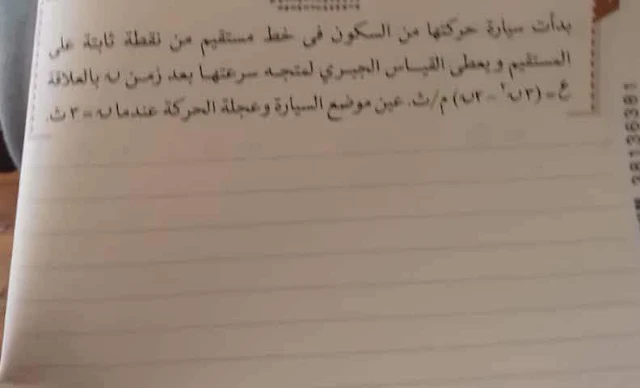 بدأت سيارة حركتها من السكون في خط مستقيم من نقطة ثابتة على
المستقيم ويعطى القياس الجبري لمتجه سرعتها بعد زمن ن بالعلاقة
ع = (٣ن٢ - ٢ن) م/ث. عين موضع السيارة وعجلة الحركة عندما ن = ٣ ث.
38136381